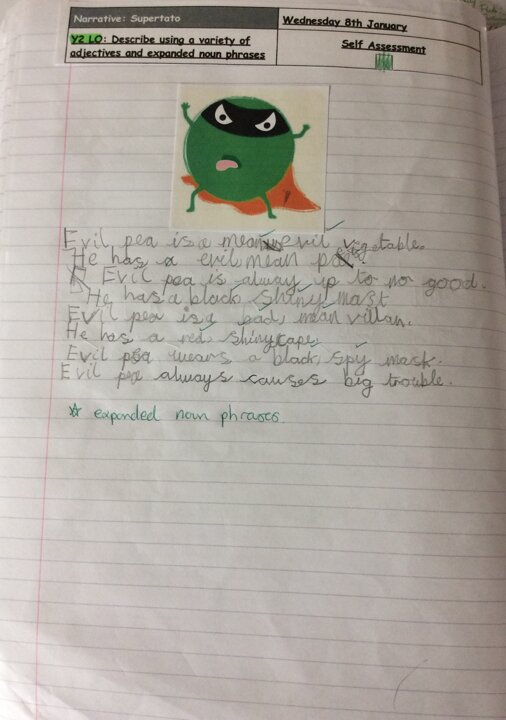 Narrative: Supertato
Wednesday 8th January
Y2 LO: Describe using a variety of
adjectives and expanded noun phrases
Self Assessment
Evil pea is a mean evil vegetable.
He has a evil mean
Evil pea is always up to no good.
He has a black, shiny mask
Evil pea is a bad, mean villan.
He has a red, shiny cape,
Evil pea wears a black, spy mask.
Evil pea always causes big trouble.
☆ expanded noun phrases.